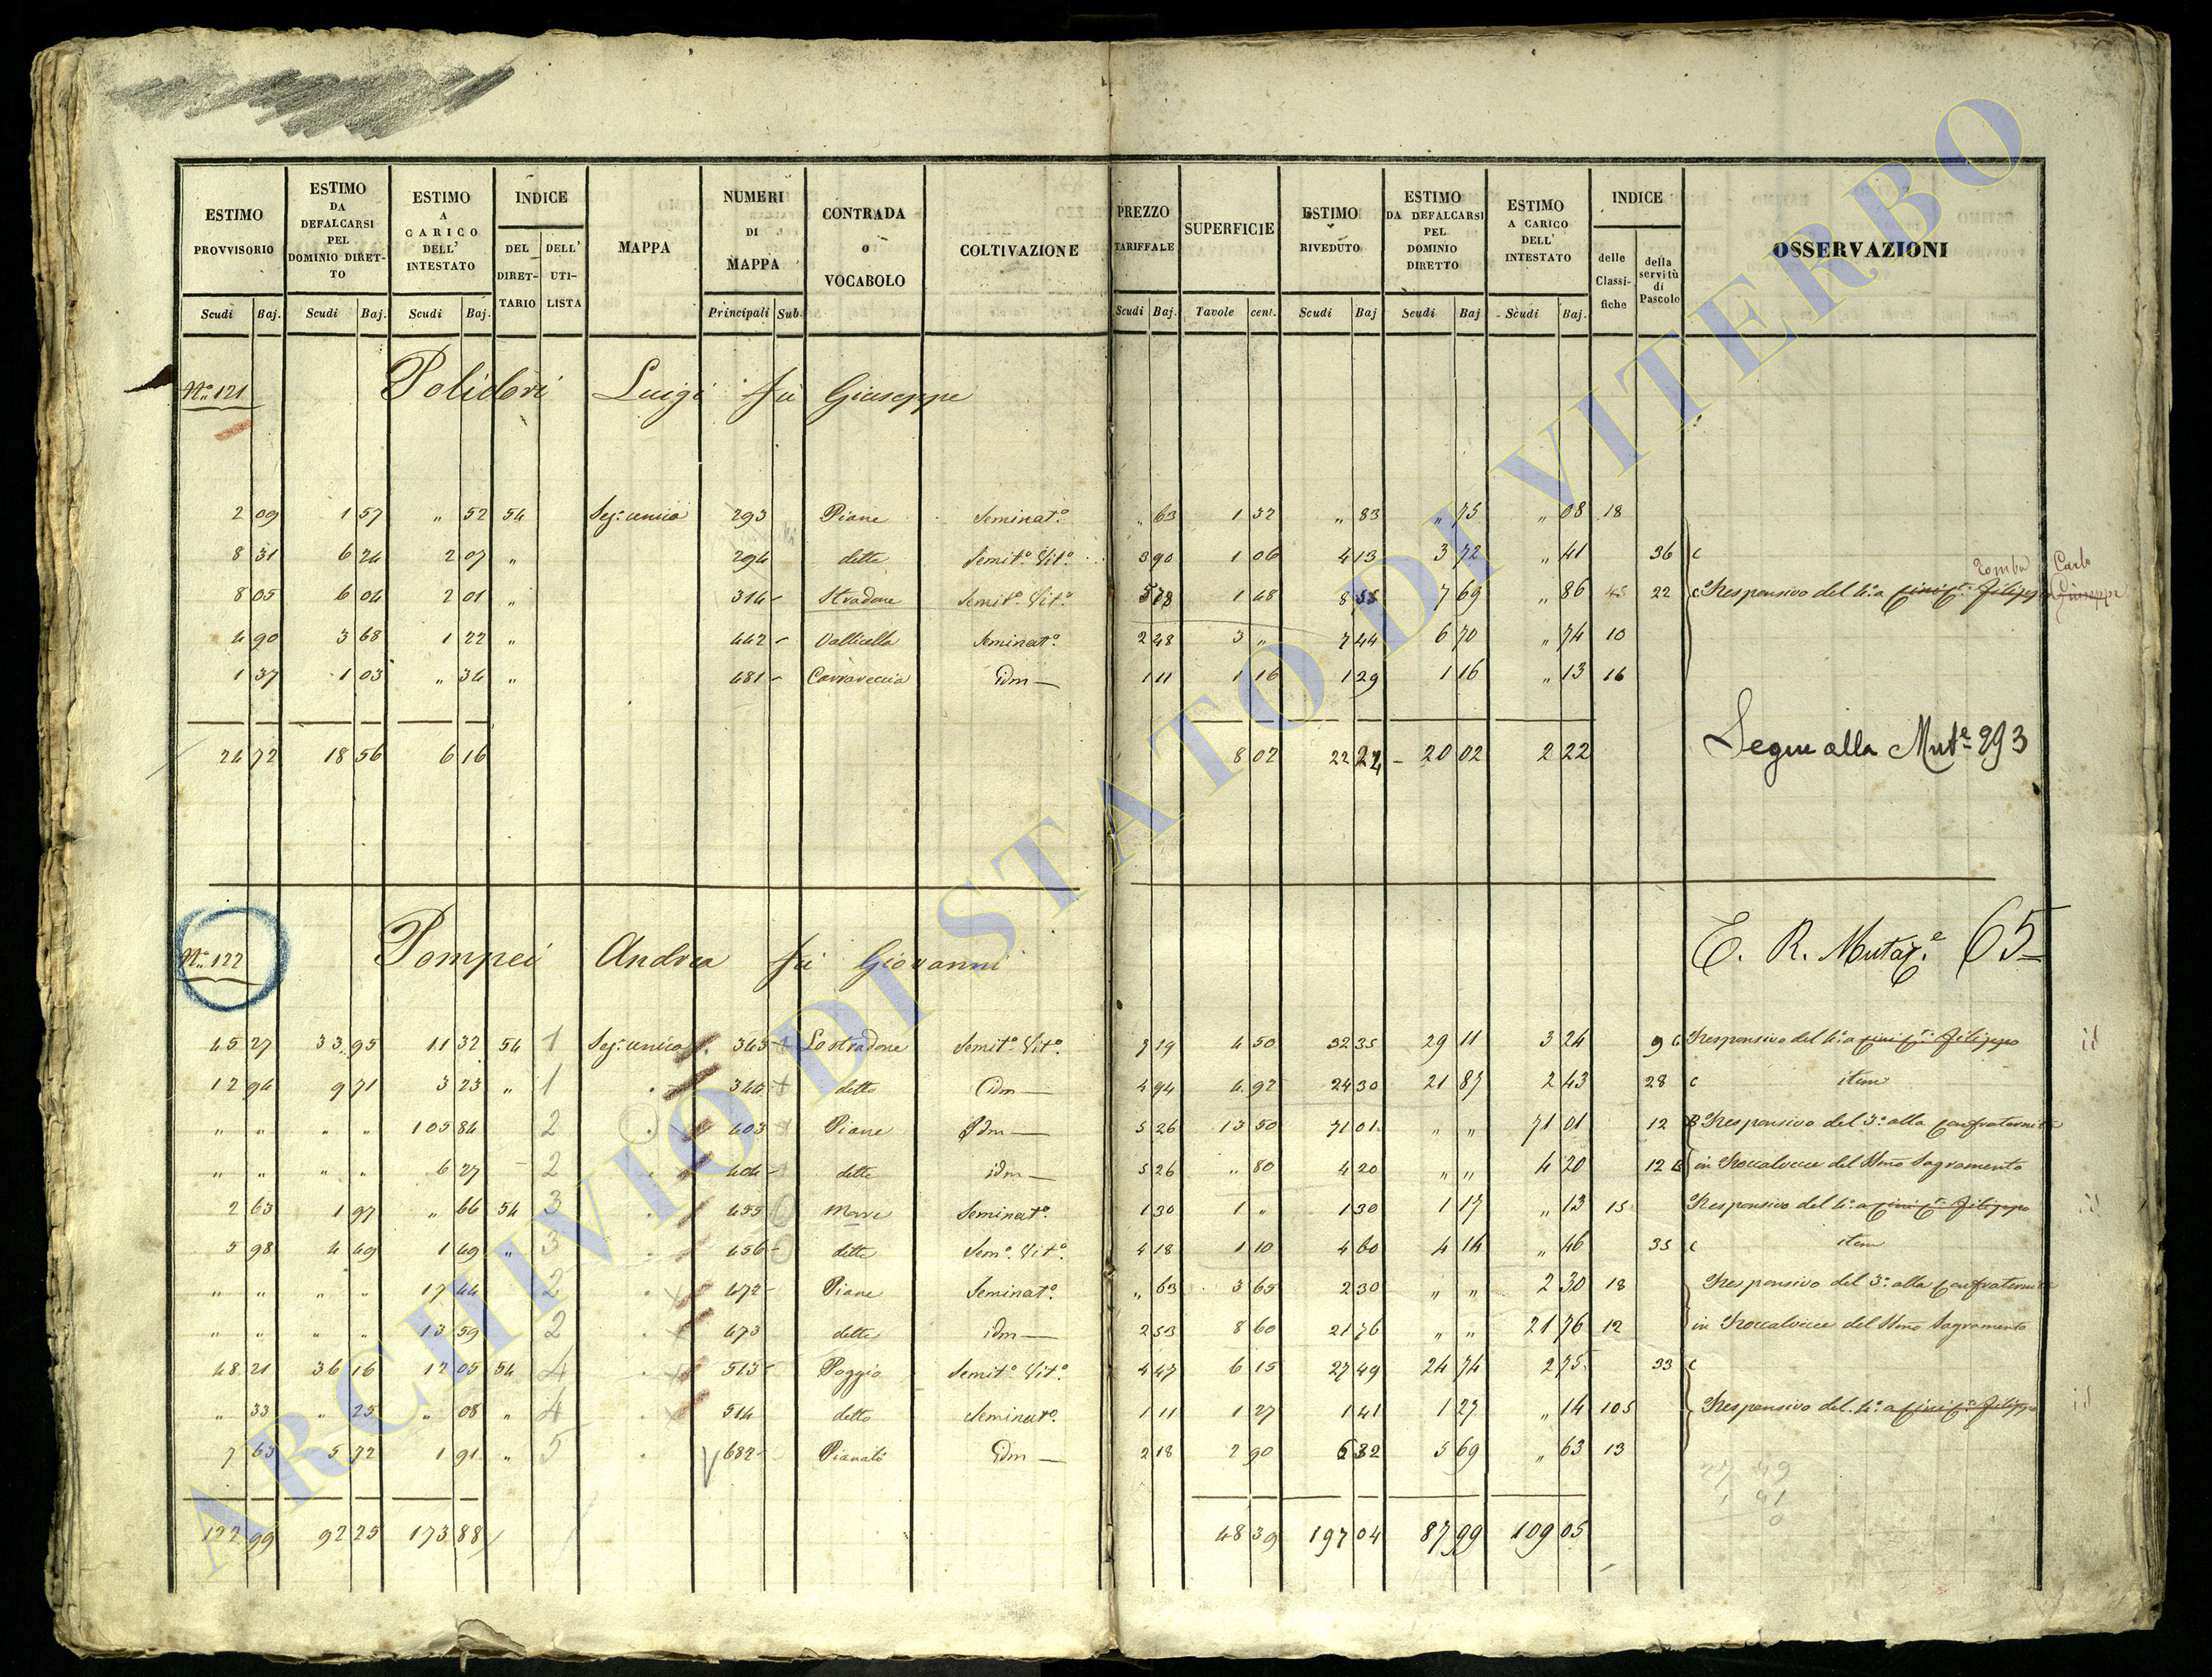 ESTIMO PROVVISORIO | ESTIMO DA DEFALCARSI PEL DOMINIO DIRETTO | ESTIMO A CARICO DELL' INTESTATO | INDICE DEL DIRETTARIO | DELL' UTILISTA | MAPPA | NUMERI DI MAPPA | CONTRADA o VOCABOLO | COLTIVAZIONE | PREZZO TARIFFALE | SUPERFICIE | ESTIMO RIVEDUTO | ESTIMO DA DEFALCARSI PEL DOMINIO DIRETTO | ESTIMO A CARICO DELL' INTESTATO | INDICE delle Classifiche | della servitù di Pascolo | OSSERVAZIONI
Scudi Baj. Scudi Baj. Scudi Baj. Principali Sub. Scudi Baj. Tavole cent. Scudi Baj Scudi Baj Scudi Baj.
N.o 121 Polidori Luigi fu Giuseppe
2 09 1 57 " 52 54 Sez.e unica 293 Piane Seminat.o " 63 1 32 " 83 " 75 " 08 18
8 31 6 24 2 07 " 294 dette Semit.o Vit.o 3 90 1 06 4 13 3 72 " 41 36 c
Carlo
8 05 6 04 2 01 " 314 Stradone Semit.o Vit.o 5 78 1 48 8 55 7 69 " 86 45 22 c Responsivo del 4.o a Filippo Giuseppe
4 90 3 68 1 22 " 442 Vallicella Seminat.o 2 48 3 " 7 44 6 70 " 74 10
1 37 1 03 " 34 " 481 Carraveccia Idm 1 11 1 16 1 29 1 16 " 13 16
24 72 18 56 6 16 8 02 22 24 20 02 2 22
Segue alla Mut.e 293
N.o 122 Pompei Andrea fu Giovanni E. R. Mutaz.e 65
45 27 33 95 11 32 54 1 Sez.e unica 343 Lo stradone Semit.o Vit.o 7 19 4 50 32 35 29 11 3 24 9 c Responsivo del 4.o a Filippo id
12 94 9 71 3 23 " 1 344 detto Idm 4 94 4 92 24 30 21 87 2 43 28 c item
" " " " 105 84 2 403 Piane Idm 5 26 13 50 71 01 " " 71 01 12 B Responsivo del 3.o alla Confraternita
" " " " 6 27 2 404 dette idm 5 26 " 80 4 20 " " 4 20 12 B in Roccalvecce del SSmo Sagramento
2 63 1 97 " 66 54 3 455 Seminat.o 1 30 1 " 1 30 1 17 " 13 15 Responsivo del 4.o a Filippo id
5 98 4 49 1 49 " 3 456 dette Sem.o Vit.o 4 18 1 10 4 60 4 14 " 46 35 c item
" " " " 17 44 2 472 Piane Seminat.o " 63 3 65 2 30 " " 2 30 18 Responsivo del 3.o alla Confraternita
" " " " 13 59 2 473 dette idm 2 53 8 60 21 76 " " 21 76 12 in Roccalvecce del SSmo Sagramento
48 21 36 16 12 05 54 4 513 Poggio Semit.o Vit.o 4 47 6 15 27 49 24 74 2 75 33 c
" 33 " 25 " 08 " 4 514 detto Seminat.o 1 11 1 27 1 41 1 27 " 14 105 Responsivo del 4.o a Filippo id
7 63 5 72 1 91 " 5 682 Pianali Idm 2 18 2 90 6 32 5 69 " 63 13
27 49
1 41
122 99 92 25 173 88 48 39 197 04 87 99 109 05
ARCHIVIO DI STATO DI VITERBO